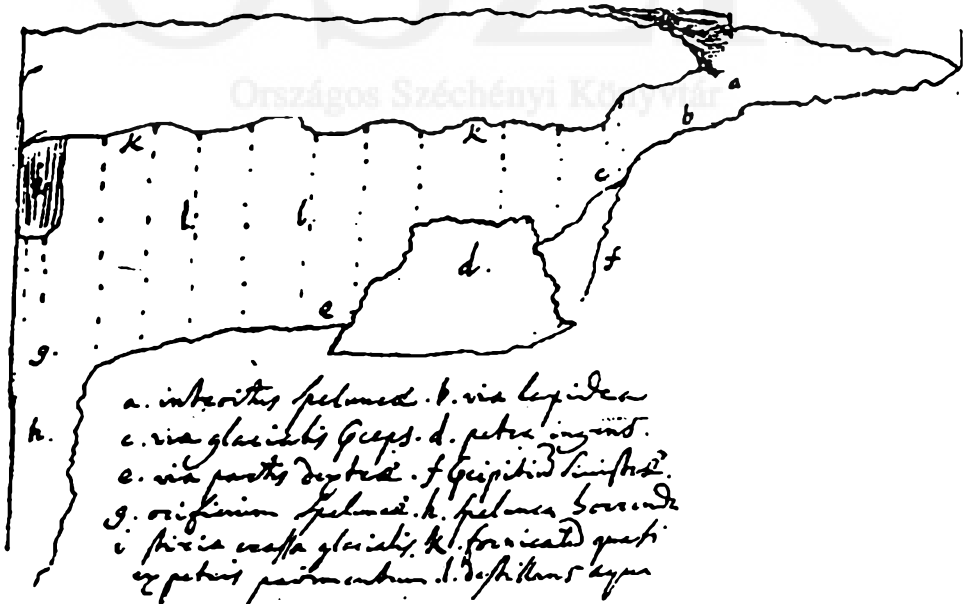 Országos Széchényi Könyvtár
a
b
k
k
c
i
l.
l.
d.
f
e
g.
h.
a. introitus speluncæ. b. via lapidea
c. via glacialis præceps. d. petra ingens.
e. via partis dextræ. f præcipitiũ sinistræ.
g. orificium speluncæ. h. spelunca horrenda
i stiria crassa glacialis. k. fornicatũ quasi
ex petris pavimentum. l. destillans aqua